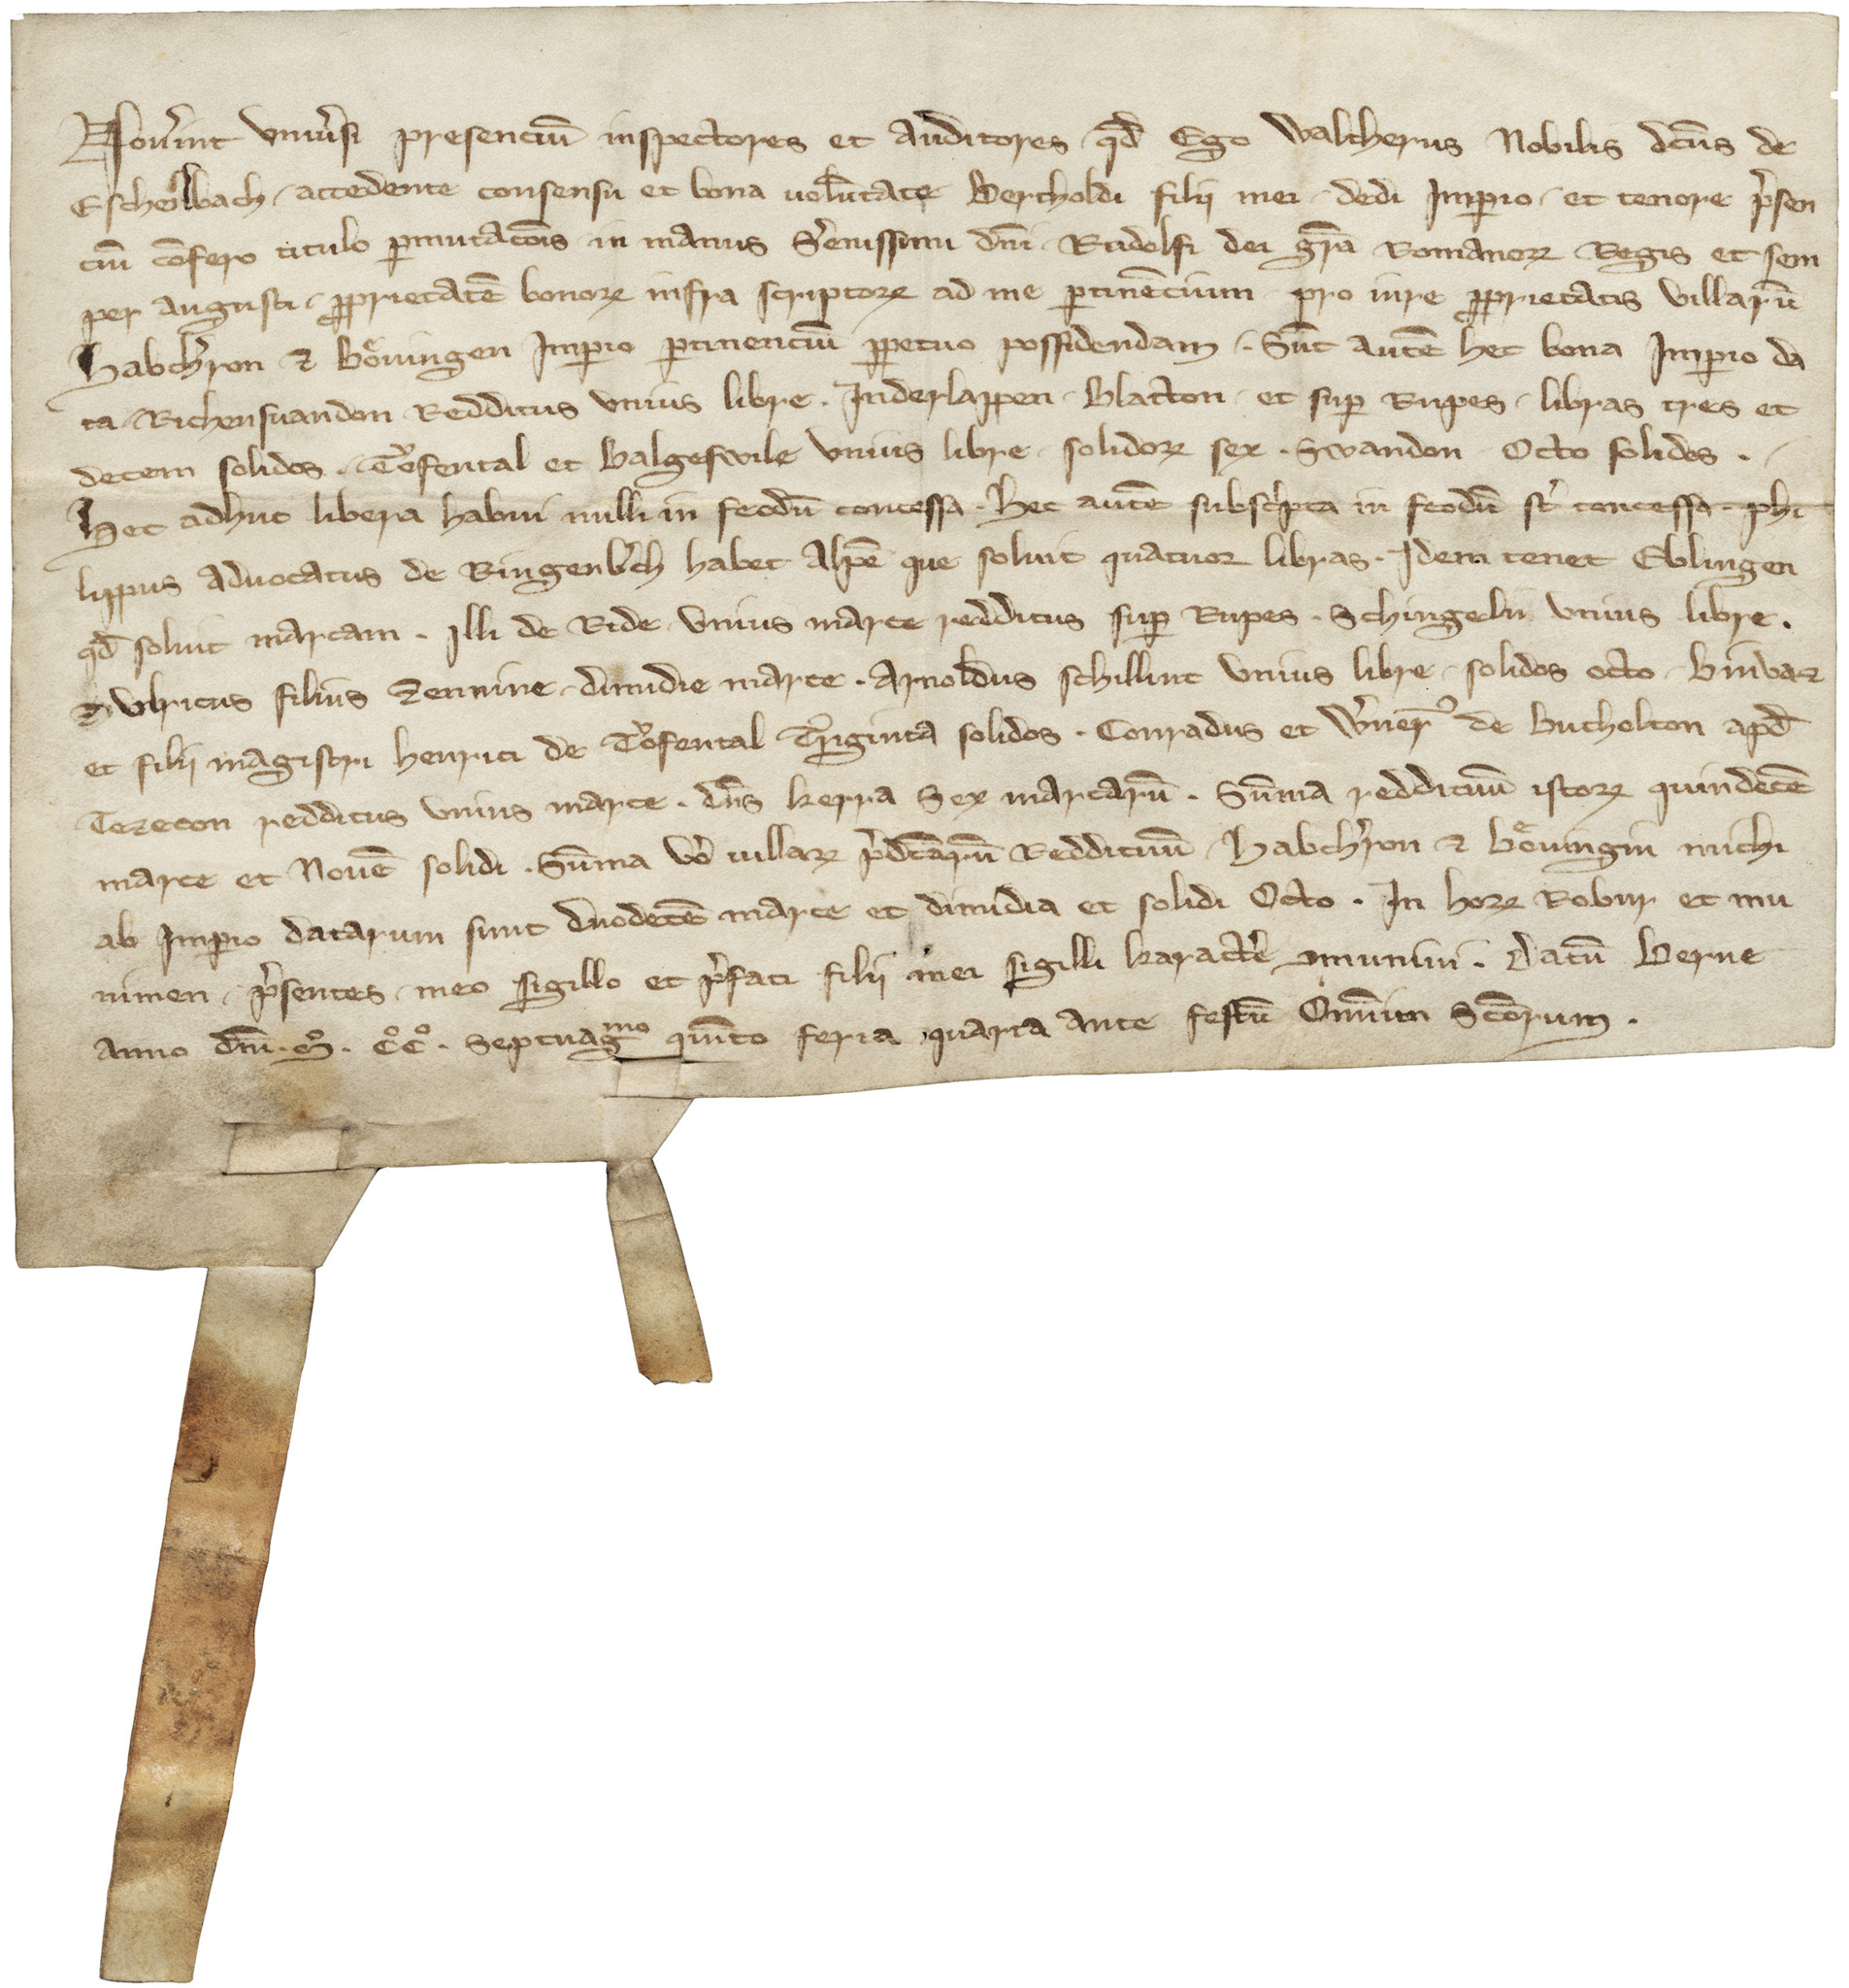 Nov̾int vniu̾si presenciū inspectores et auditores qd̄ Ego Waltherus Nobilis dc̄us de
Eschellbach, accedente consensu et bona uolūtate Bertholdi filij mei, dedi Imꝑio, et tenore p̾sen
ciū cōfero titulo ꝑmutac̄ōis in manus S̾enissimi dn̄i Rudolfi dei gr̄a Romanoꝝ Regis et sem
per augusti, ꝓprietatē bonoꝝ infra scriptoꝝ ad me ꝑtinēcium pro iure ꝓprietatis villarū
habch̾ron ⁊ Bôningen Imꝑio ꝑtinenciū ꝑpetuo possidendam. Sūt autē hec bona Imꝑio da
ta, Richensuandon Redditus vnius libre. Inderlappen, Blatton, et suꝑ Rupes, libras tres et
decem solidos. Tofental et Balgeswile vnius libre, solidoꝝ sex. Swandon Octo solidos.
Hec adhuc libera habui nulli in feodū concessa. hec autē subsc̾pta in feodū st̄ concessa. phi
lippus aduocatus de Ringenb̾ch habet Alpē que soluit quatuor libras. Idem tenet Eblingen
qd̄ soluit marcam. Illi de Ride vnius marce redditus suꝑ Rupes. Schingelii vnius libre.
⁊ vlricus filius Zennine, dimidie marce. Arnoldus schillint vnius libre, solidos octo,
et filij magistri henrici de Tofental Triginta solidos. Conradus et W̾nerꝰ de Bucholton apd̄
Tezeton redditus vnius marce. dn̄s kerra Sex marcarū. Sūma reddituū istoꝝ quindecē
marce et Nouē solidi. Sūma v̾o uillaꝝ p̾dc̄arū Reddituū habch̾ron ⁊ Bôningin michi
ab Imꝑio datarum sunt duodecē marce et dimidia et solidi Octo. In hoꝝ Robur et mu
nimen, p̾sentes, meo sigillo et p̾fati filij mei sigilli karact̾e ꝯmuniui. Datū Berne
anno dn̄i. m̊. c̊c̊. Septuag̅mo quīto feria quarta ante festū Om̄iu Sc̄orum.